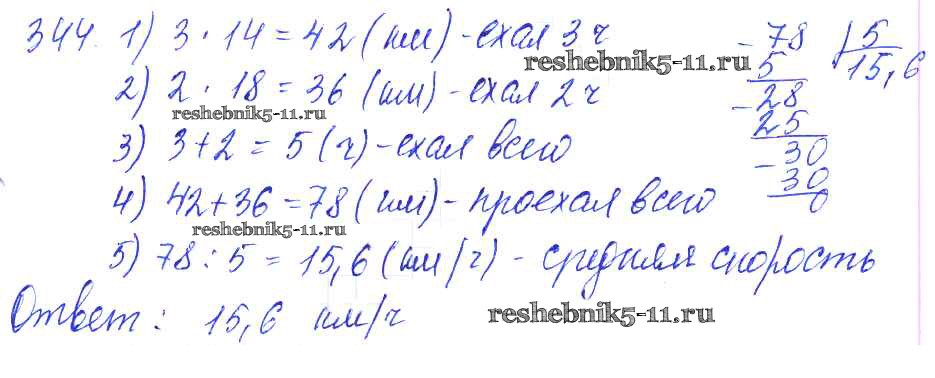 344. 1) 3 · 14 = 42 (км) - ехал 3 ч
reshebnik5-11.ru
2) 2 · 18 = 36 (км) - ехал 2 ч
reshebnik5-11.ru
3) 3 + 2 = 5 (ч) - ехал всего
4) 42 + 36 = 78 (км) - проехал всего
reshebnik5-11.ru
5) 78 : 5 = 15,6 (км/ч) - средняя скорость
Ответ: 15,6 км/ч
reshebnik5-11.ru
- 78 | 5
5 15,6
- 28
25
- 30
30
0